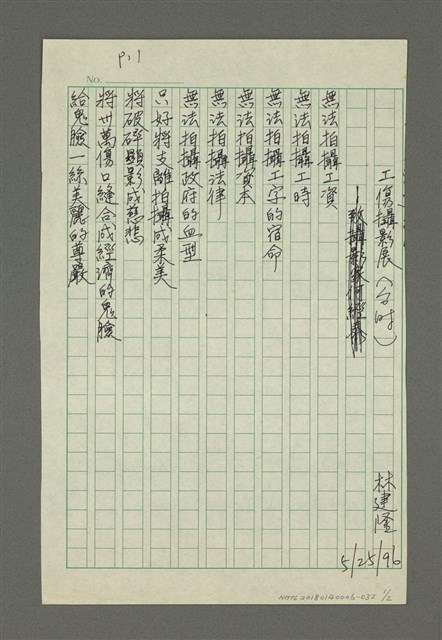 P.1
No.
工傷攝影展（台時）
林建隆
5/25/96
無法拍攝工資
無法拍攝工時
無法拍攝工字的宿命
無法拍攝資本
無法拍攝法律
無法拍攝政府的血型
只好將支離拍攝成柔美
將破碎顯影成慈悲
將卅萬傷口縫合成經濟的鬼臉
給鬼臉一絲美麗的尊嚴
NMTL20180140006-032 1/2